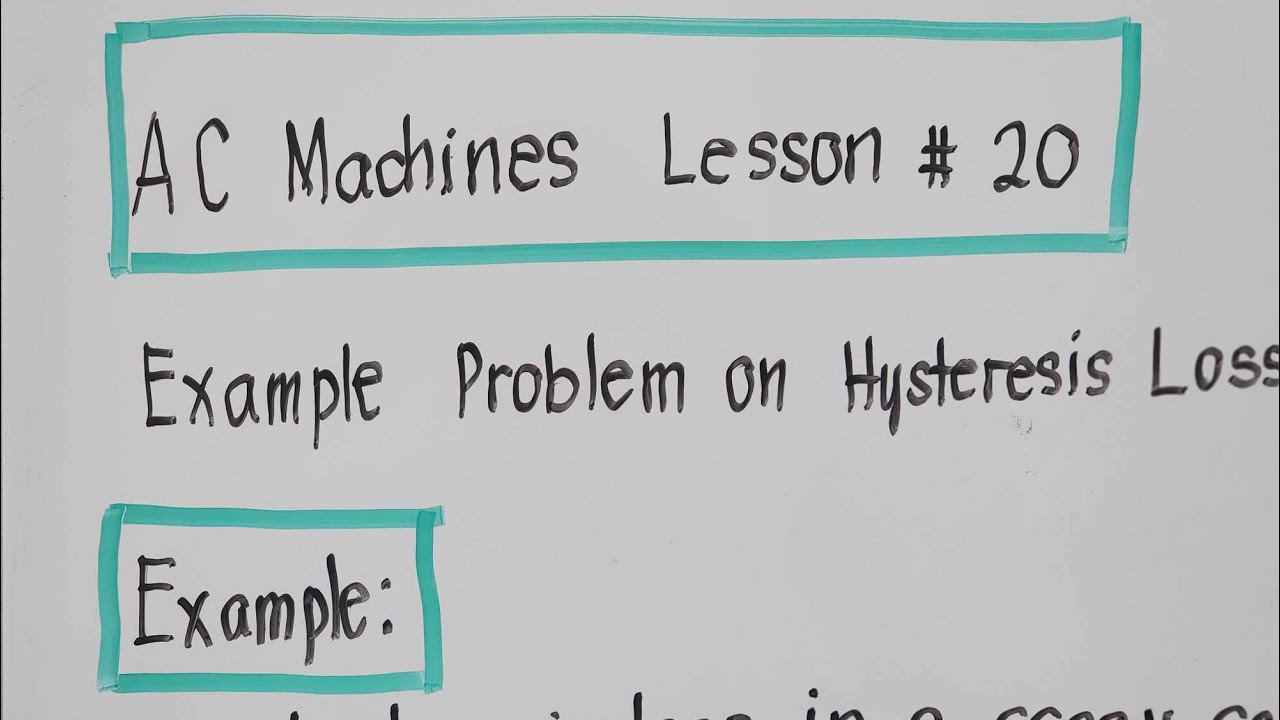 AC Machines Lesson # 20
Example Problem on Hysteresis Loss
Example:
in a